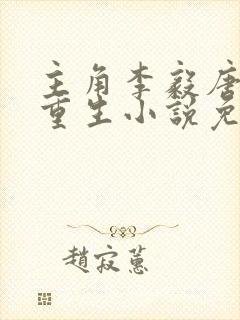 主角李毅唐
重生小說免
趙寂蕙